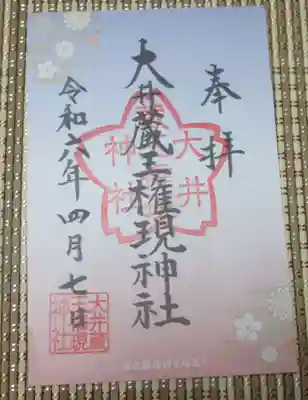 奉拝
大井蔵王権現神社
令和六年四月七日
大井蔵
王権現
神社